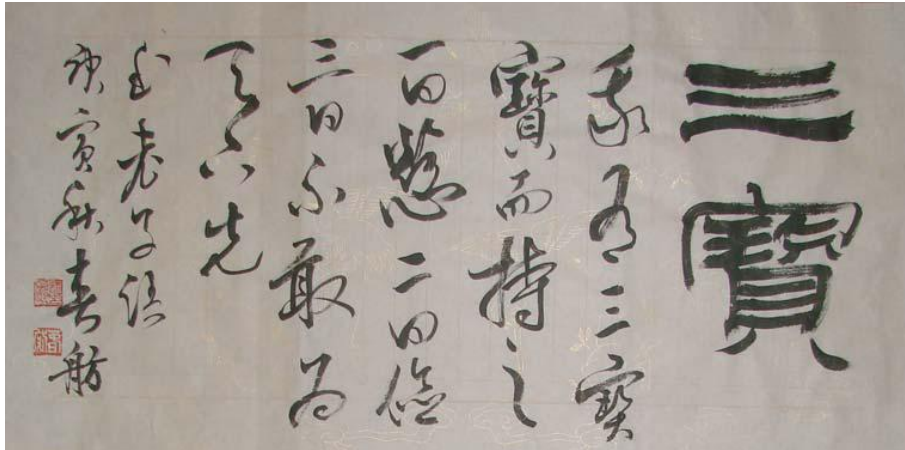 三寶
我有三寶
寶而持之
一曰慈二曰儉
三曰不敢為
天下先
老子語
庚寅秋春舫